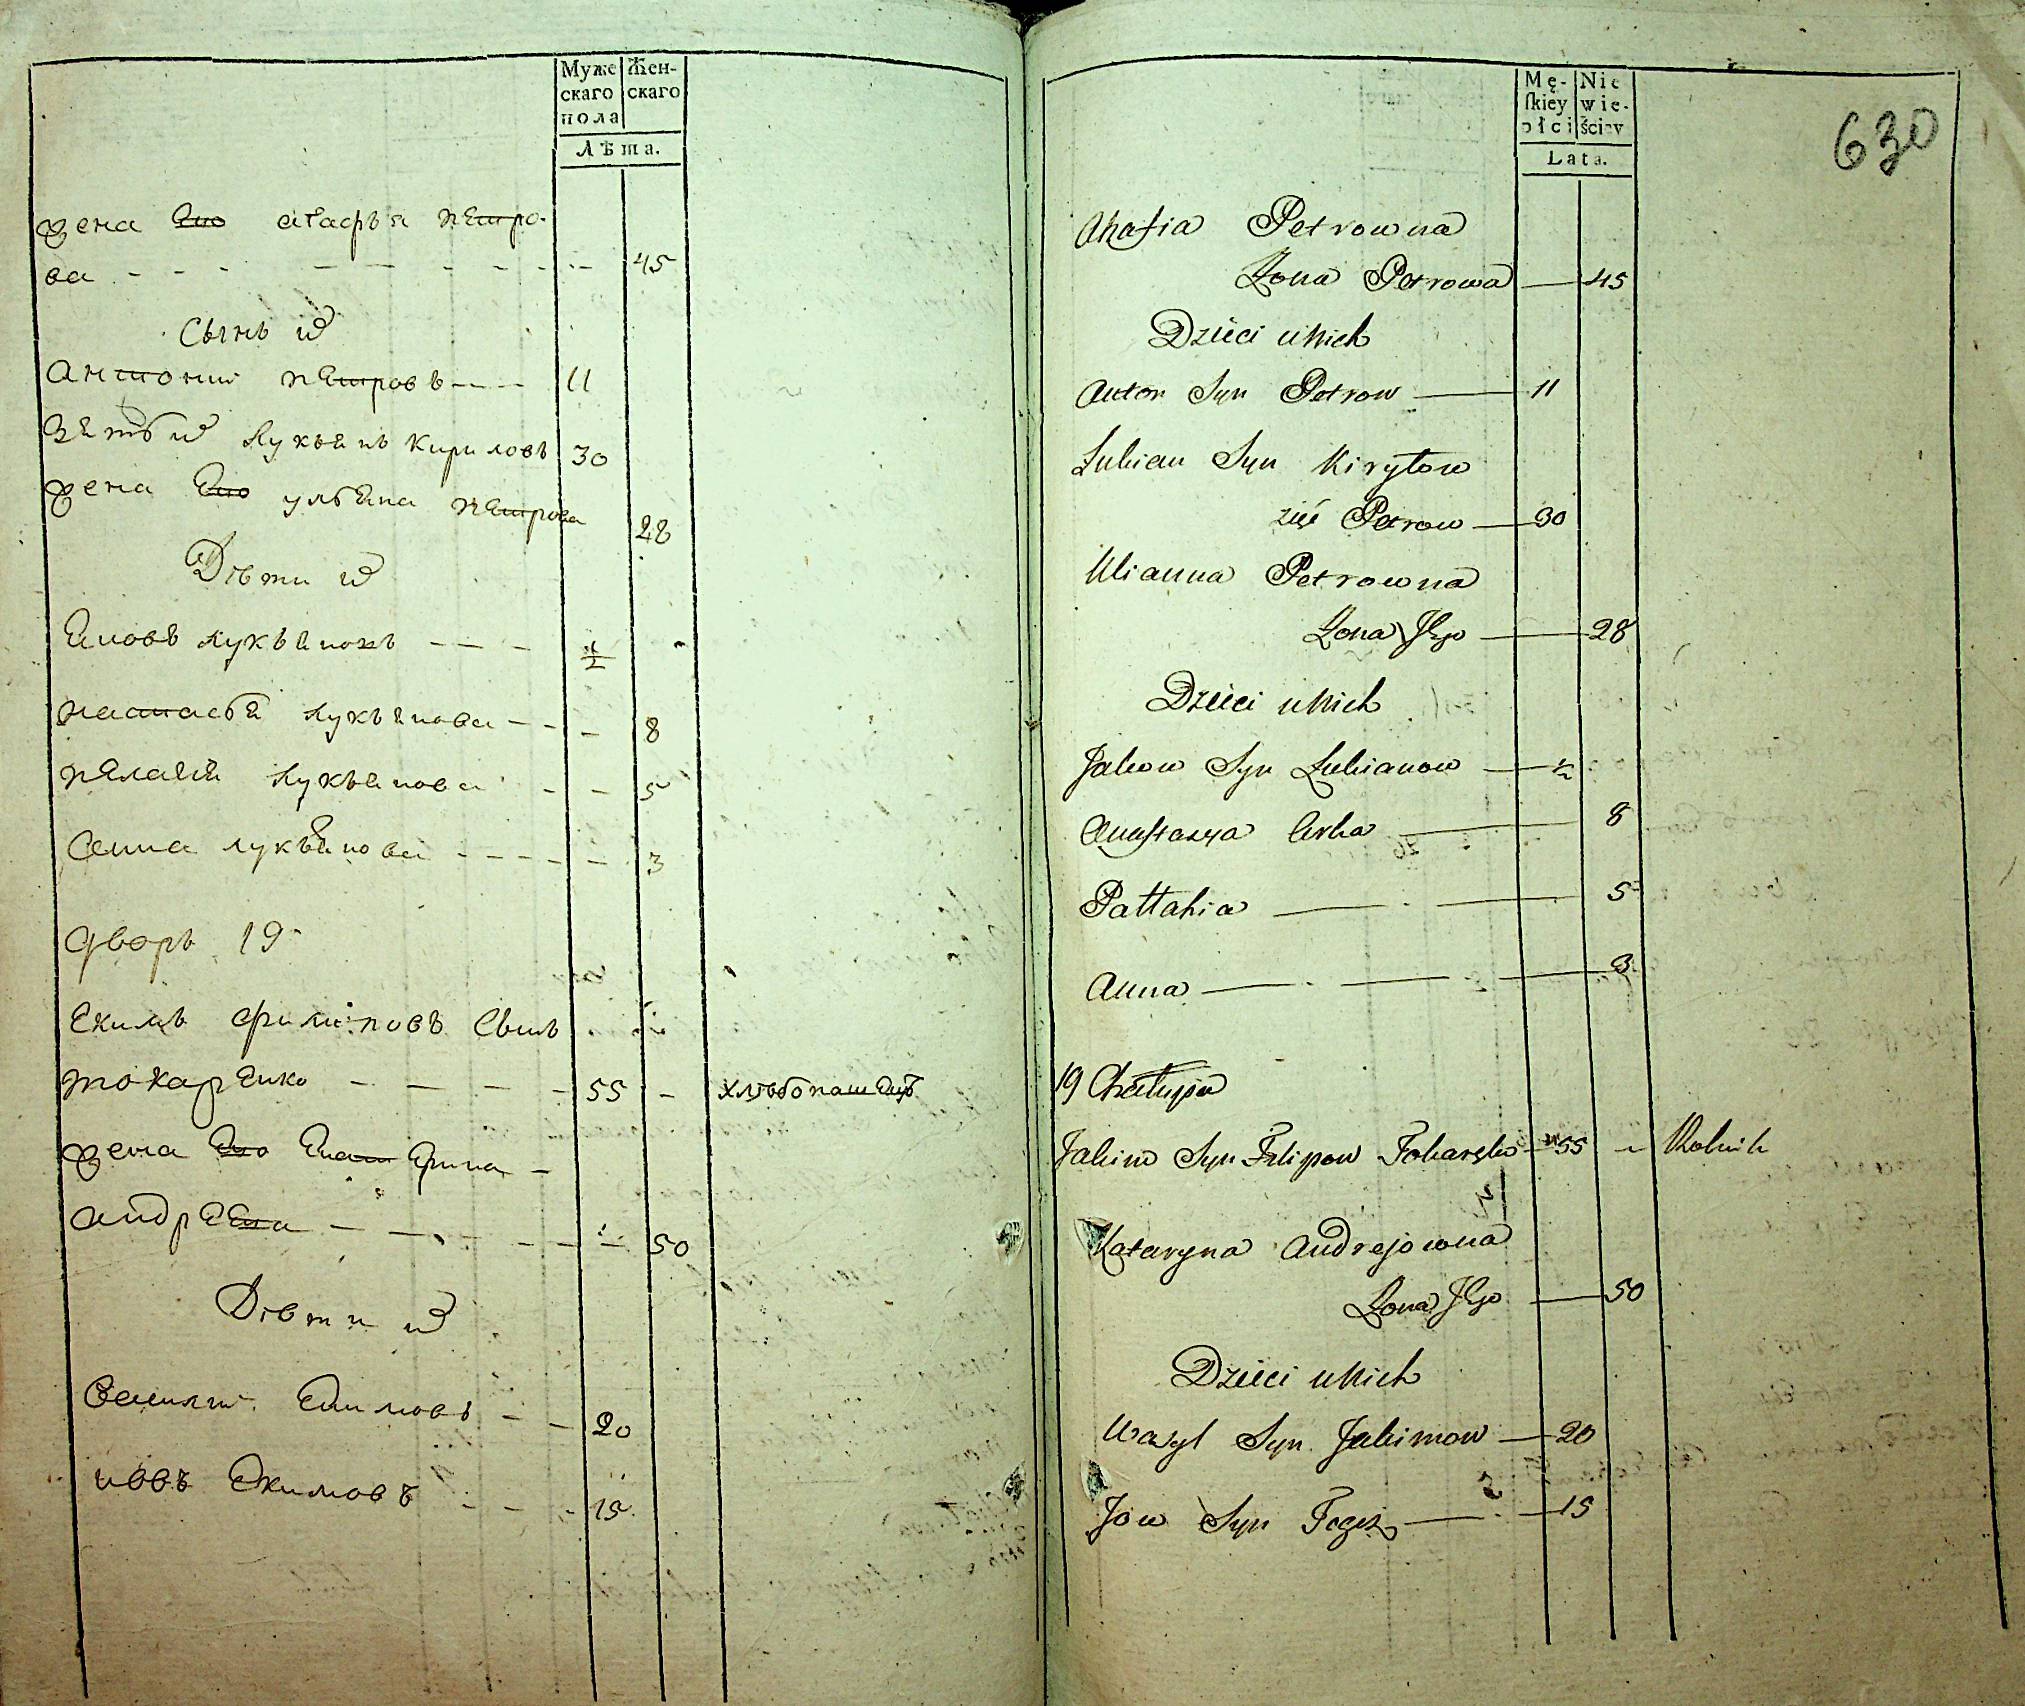 Муже
скаго
пола
Жен-
скаго
Лѣта.
жена Его агафья пѣтро-
ва 45
Сынъ ихъ
антоній пѣтровъ 11
зять ихъ лукьянъ кириловъ 30
жена Его ульяна пѣтрова 28
Дѣти ихъ
лукьяновъ 1/2
настасья лукьянова 8
пѣлагія лукьянова 5
анна лукьянова 3
дворъ 19
Екимъ филиповъ сынъ
токарѣнко 55 хлѣбопашецъ
жена Его Екатерина
андрѣева 50
Дѣти ихъ
василій Екимовъ 20
иовъ Екимовъ 15
630
Mę-
ſkiey
płci
Nie
wie-
ściey
Lata.
Ahafia Petrowna
Żona Petrowa 45
Dzieci u Nich
Anton Syn Petrow 11
Lukian Syn Kiryłow
zięć Petrow 30
Ulianna Petrowna
Żona Jego 28
Dzieci u Nich
Jakow Syn Lukianow 1/2
Anastazya Corka 8
Pallahia 5
Anna 3
19 Chałupa
Jakim Syn Filipow Tokarenko 55 Rolnik
Kataryna Andrejowna
Żona Jego 50
Dzieci u Nich
Wasyl Syn Jakimow 20
Jow Syn Tegoż 15